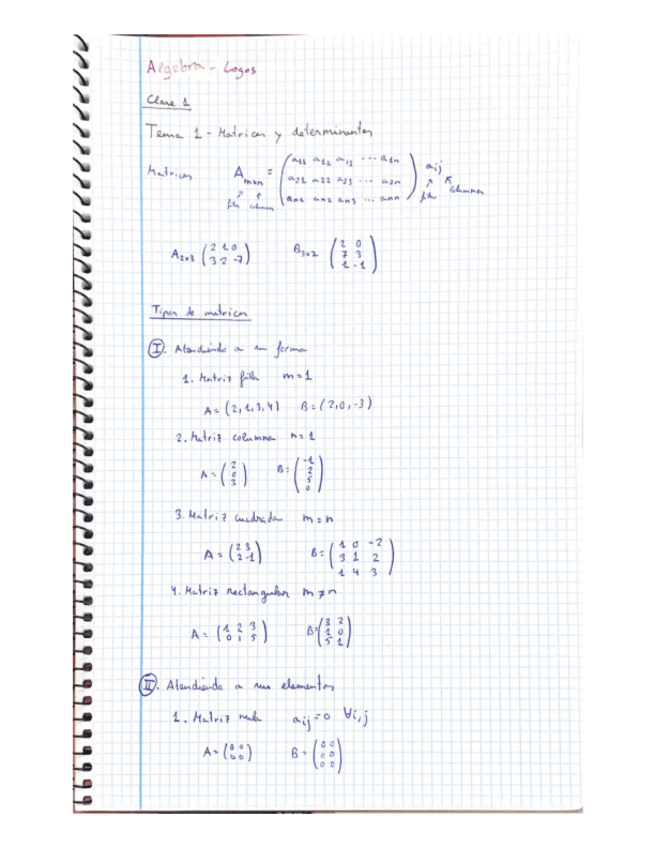 Algebra - Logos
Clase 1
Tema 1 - Matrices y determinantes
Matrices A mxn = ( a11 a12 a13 ... a1n ) aij
a21 a22 a23 ... a2n
an1 an2 an3 ... ann
fila columna fila columna
A2x3 ( 2 1 0 ) B3x2 ( 2 0 )
3 2 -7 7 3
1 -1
Tipos de matrices
I. Atendiendo a su forma
1. Matriz fila m=1
A = (2,1,3,4) B = (2,0,-3)
2. Matriz columna n=1
A = ( 2 0 3 ) B = ( -1 2 5 0 )
3. Matriz cuadrada m=n
A = ( 2 3 ) B = ( 1 0 -2 )
2 -1 3 1 2
1 4 3
4. Matriz rectangular m≠n
A = ( 1 2 3 ) B = ( 3 2 )
0 1 5 1 0
5 1
II. Atendiendo a sus elementos
1. Matriz nula aij=0 ∀i,j
A = ( 0 0 ) B = ( 0 0 )
0 0 0 0
0 0